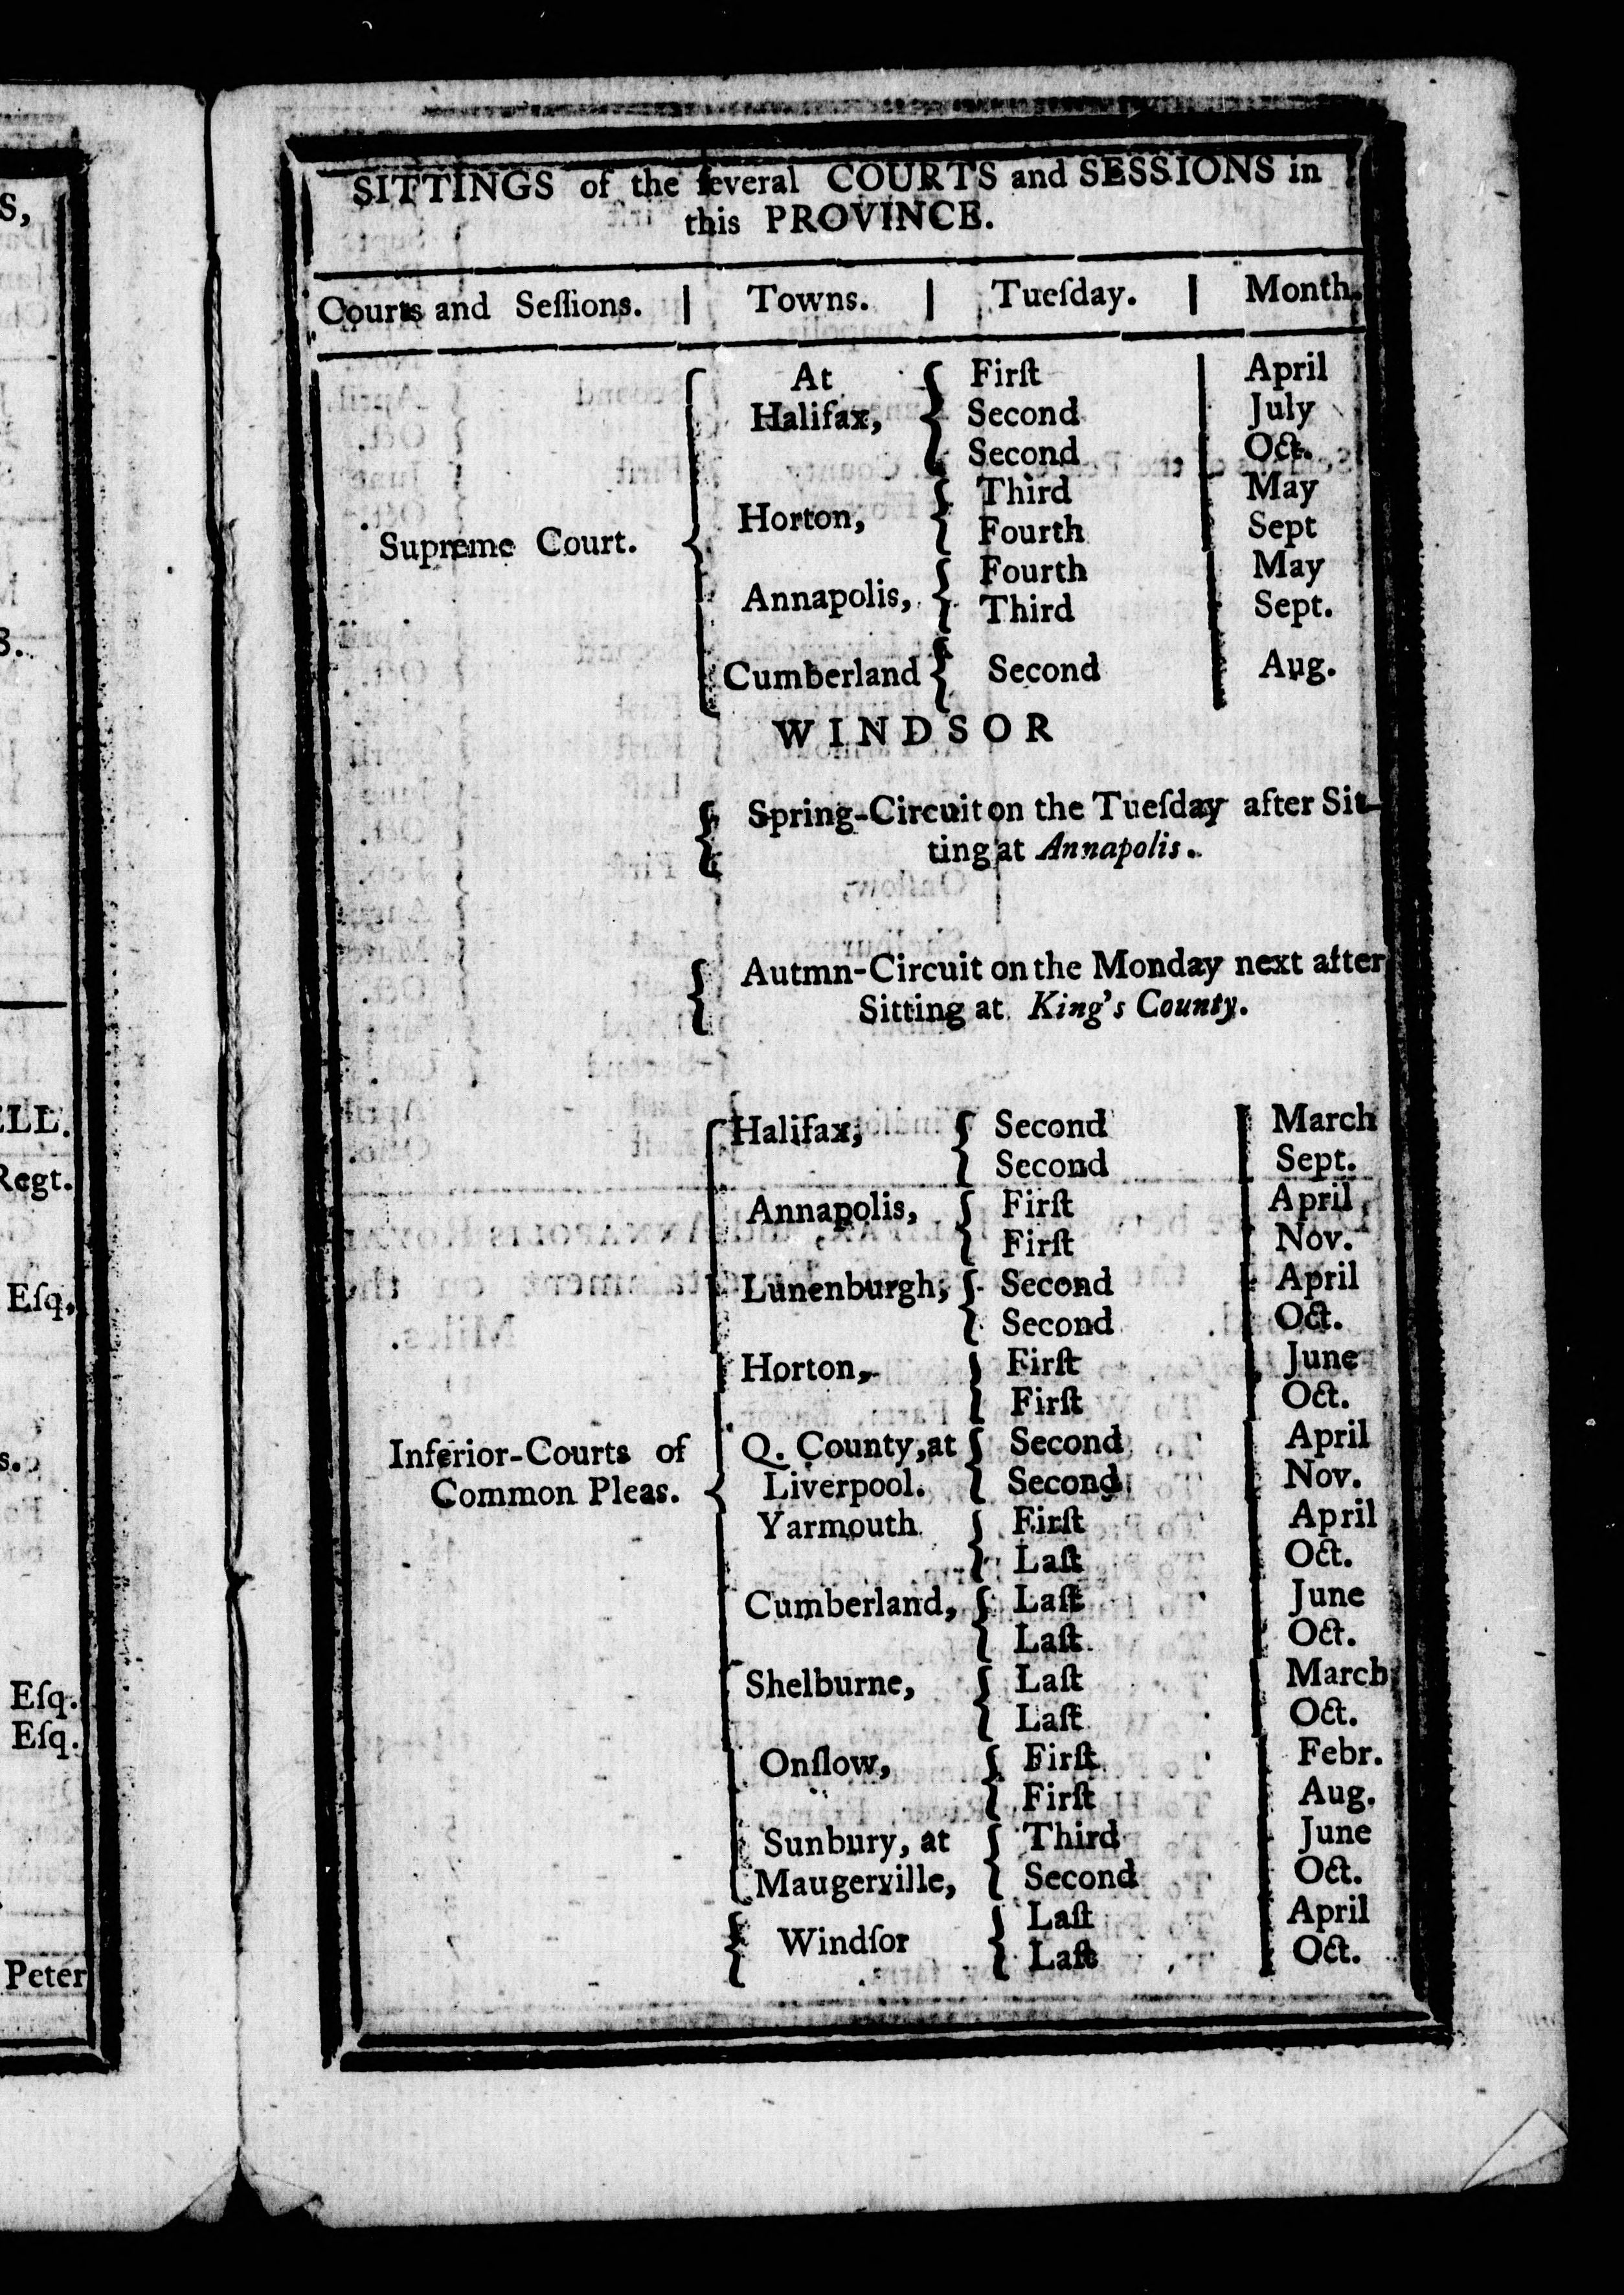 S,
8.
ELL.
Regt.
Eſq.
s.
Eſq.
Eſq.
Peter
SITTINGS of the ſeveral COURTS and SESSIONS in
this PROVINCE.
Courts and Seſſions. | Towns. | Tueſday. | Month.
At { Firſt | April
Halifax, { Second | July
Second | Oct.
Third | May
Horton, { Fourth | Sept
Supreme Court. {
Fourth | May
Annapolis, { Third | Sept.
Cumberland { Second | Aug.
WINDSOR
{ Spring-Circuit on the Tueſday after Sit-
ting at Annapolis.
{ Autmn-Circuit on the Monday next after
Sitting at King's County.
Halifax, { Second | March
Second | Sept.
Annapolis, { Firſt | April
Firſt | Nov.
Lunenburgh, { Second | April
Second | Oct.
Horton, { Firſt | June
Firſt | Oct.
Inferior-Courts of { Q. County, at { Second | April
Common Pleas. Liverpool. Second | Nov.
Yarmouth { Firſt | April
Laſt | Oct.
Cumberland, { Laſt | June
Laſt | Oct.
Shelburne, { Laſt | March
Laſt | Oct.
Onſlow, { Firſt | Febr.
Firſt | Aug.
Sunbury, at { Third | June
Maugerville, { Second | Oct.
{ Windſor { Laſt | April
Laſt | Oct.